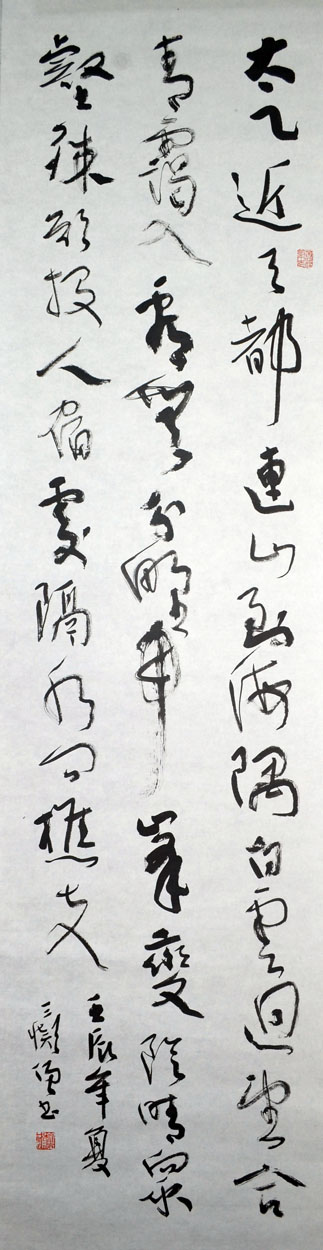 太乙近天都連山到海隅白雲迴望合
青靄入看無分野中峯變陰晴衆
壑殊欲投人宿處隔水問樵夫
壬辰年夏
書